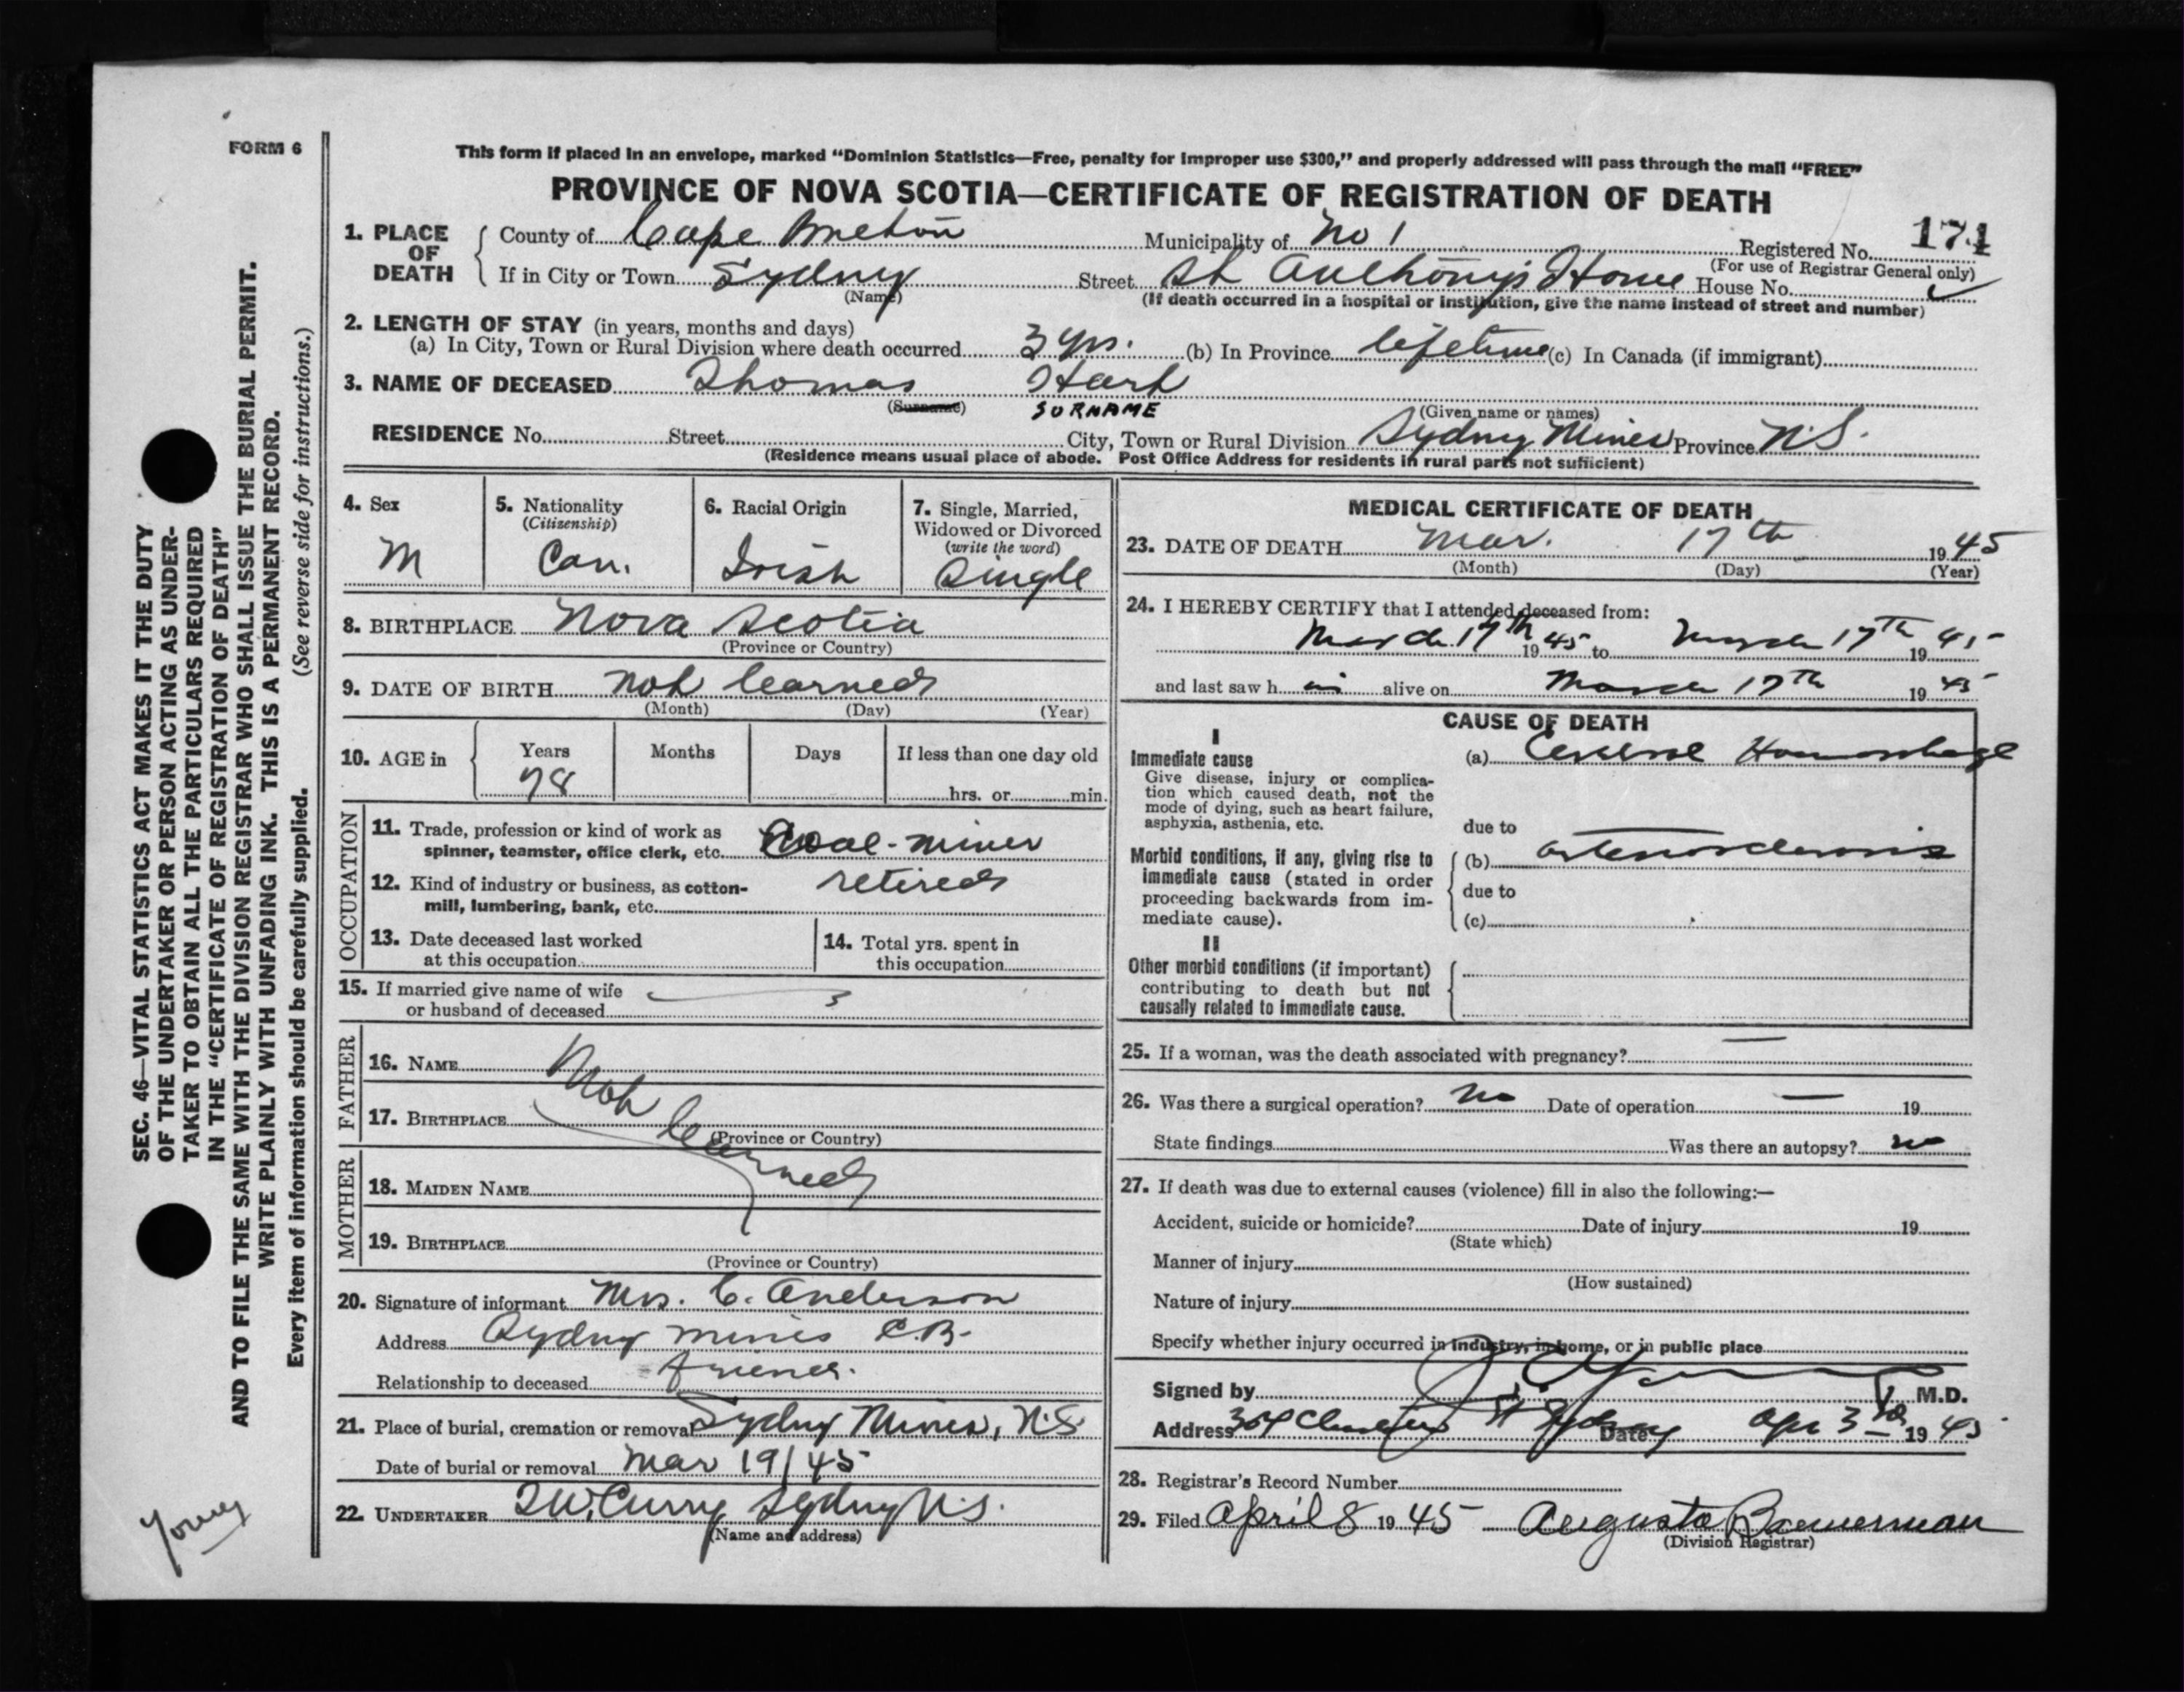 FORM 6
This form if placed in an envelope, marked “Dominion Statistics—Free, penalty for improper use $300,” and properly addressed will pass through the mail “FREE”
PROVINCE OF NOVA SCOTIA—CERTIFICATE OF REGISTRATION OF DEATH
1. PLACE OF DEATH County of Cape Breton Municipality of No 1 Registered No. 171
(For use of Registrar General only)
If in City or Town Sydney Street St Anthony's Home House No.
(Name) (If death occurred in a hospital or institution, give the name instead of street and number)
2. LENGTH OF STAY (in years, months and days)
(a) In City, Town or Rural Division where death occurred 3 yrs. (b) In Province lifetime (c) In Canada (if immigrant)
3. NAME OF DECEASED Thomas Hark
(Surname) SURNAME (Given name or names)
RESIDENCE No. Street City, Town or Rural Division Sydney Mines Province N.S.
(Residence means usual place of abode. Post Office Address for residents in rural parts not sufficient)
4. Sex 5. Nationality 6. Racial Origin 7. Single, Married,
(Citizenship) Widowed or Divorced
(write the word)
M Can. Irish Single
8. BIRTHPLACE Nova Scotia
(Province or Country)
9. DATE OF BIRTH not learned
(Month) (Day) (Year)
10. AGE in Years Months Days If less than one day old
78 hrs. or min.
OCCUPATION
11. Trade, profession or kind of work as
spinner, teamster, office clerk, etc. Coal-miner
12. Kind of industry or business, as cotton- retired
mill, lumbering, bank, etc.
13. Date deceased last worked 14. Total yrs. spent in
at this occupation this occupation
15. If married give name of wife
or husband of deceased
FATHER
16. NAME Not
17. BIRTHPLACE learned
(Province or Country)
MOTHER
18. MAIDEN NAME
19. BIRTHPLACE
(Province or Country)
20. Signature of informant Mrs. C. Anderson
Address Sydney Mines C.B.
Relationship to deceased friend.
21. Place of burial, cremation or removal Sydney Mines, N.S
Date of burial or removal Mar 19/45
22. UNDERTAKER T.W. Curry Sydney N.S.
(Name and address)
MEDICAL CERTIFICATE OF DEATH
23. DATE OF DEATH Mar. 17th 1945
(Month) (Day) (Year)
24. I HEREBY CERTIFY that I attended deceased from:
March 17th 1945 to March 17th 1945
and last saw h im alive on March 17th 1945
CAUSE OF DEATH
I
Immediate cause (a) Cerebral Hemorrhage
Give disease, injury or complica-
tion which caused death, not the
mode of dying, such as heart failure,
asphyxia, asthenia, etc.
due to
Morbid conditions, if any, giving rise to (b) arteriosclerosis
immediate cause (stated in order
proceeding backwards from im- due to
mediate cause). (c)
II
Other morbid conditions (if important)
contributing to death but not
causally related to immediate cause.
25. If a woman, was the death associated with pregnancy? —
26. Was there a surgical operation? No Date of operation — 19
State findings Was there an autopsy? no
27. If death was due to external causes (violence) fill in also the following:—
Accident, suicide or homicide? Date of injury 19
(State which)
Manner of injury
(How sustained)
Nature of injury
Specify whether injury occurred in industry, in home, or in public place
Signed by M.D.
Address St Sydney Date Apr 3rd 1945
28. Registrar's Record Number
29. Filed April 8 1945 Augusta Bannerman
(Division Registrar)
SEC. 46—VITAL STATISTICS ACT MAKES IT THE DUTY
OF THE UNDERTAKER OR PERSON ACTING AS UNDER-
TAKER TO OBTAIN ALL THE PARTICULARS REQUIRED
IN THE “CERTIFICATE OF REGISTRATION OF DEATH”
AND TO FILE THE SAME WITH THE DIVISION REGISTRAR WHO SHALL ISSUE THE BURIAL PERMIT.
WRITE PLAINLY WITH UNFADING INK. THIS IS A PERMANENT RECORD.
Every item of information should be carefully supplied. (See reverse side for instructions.)